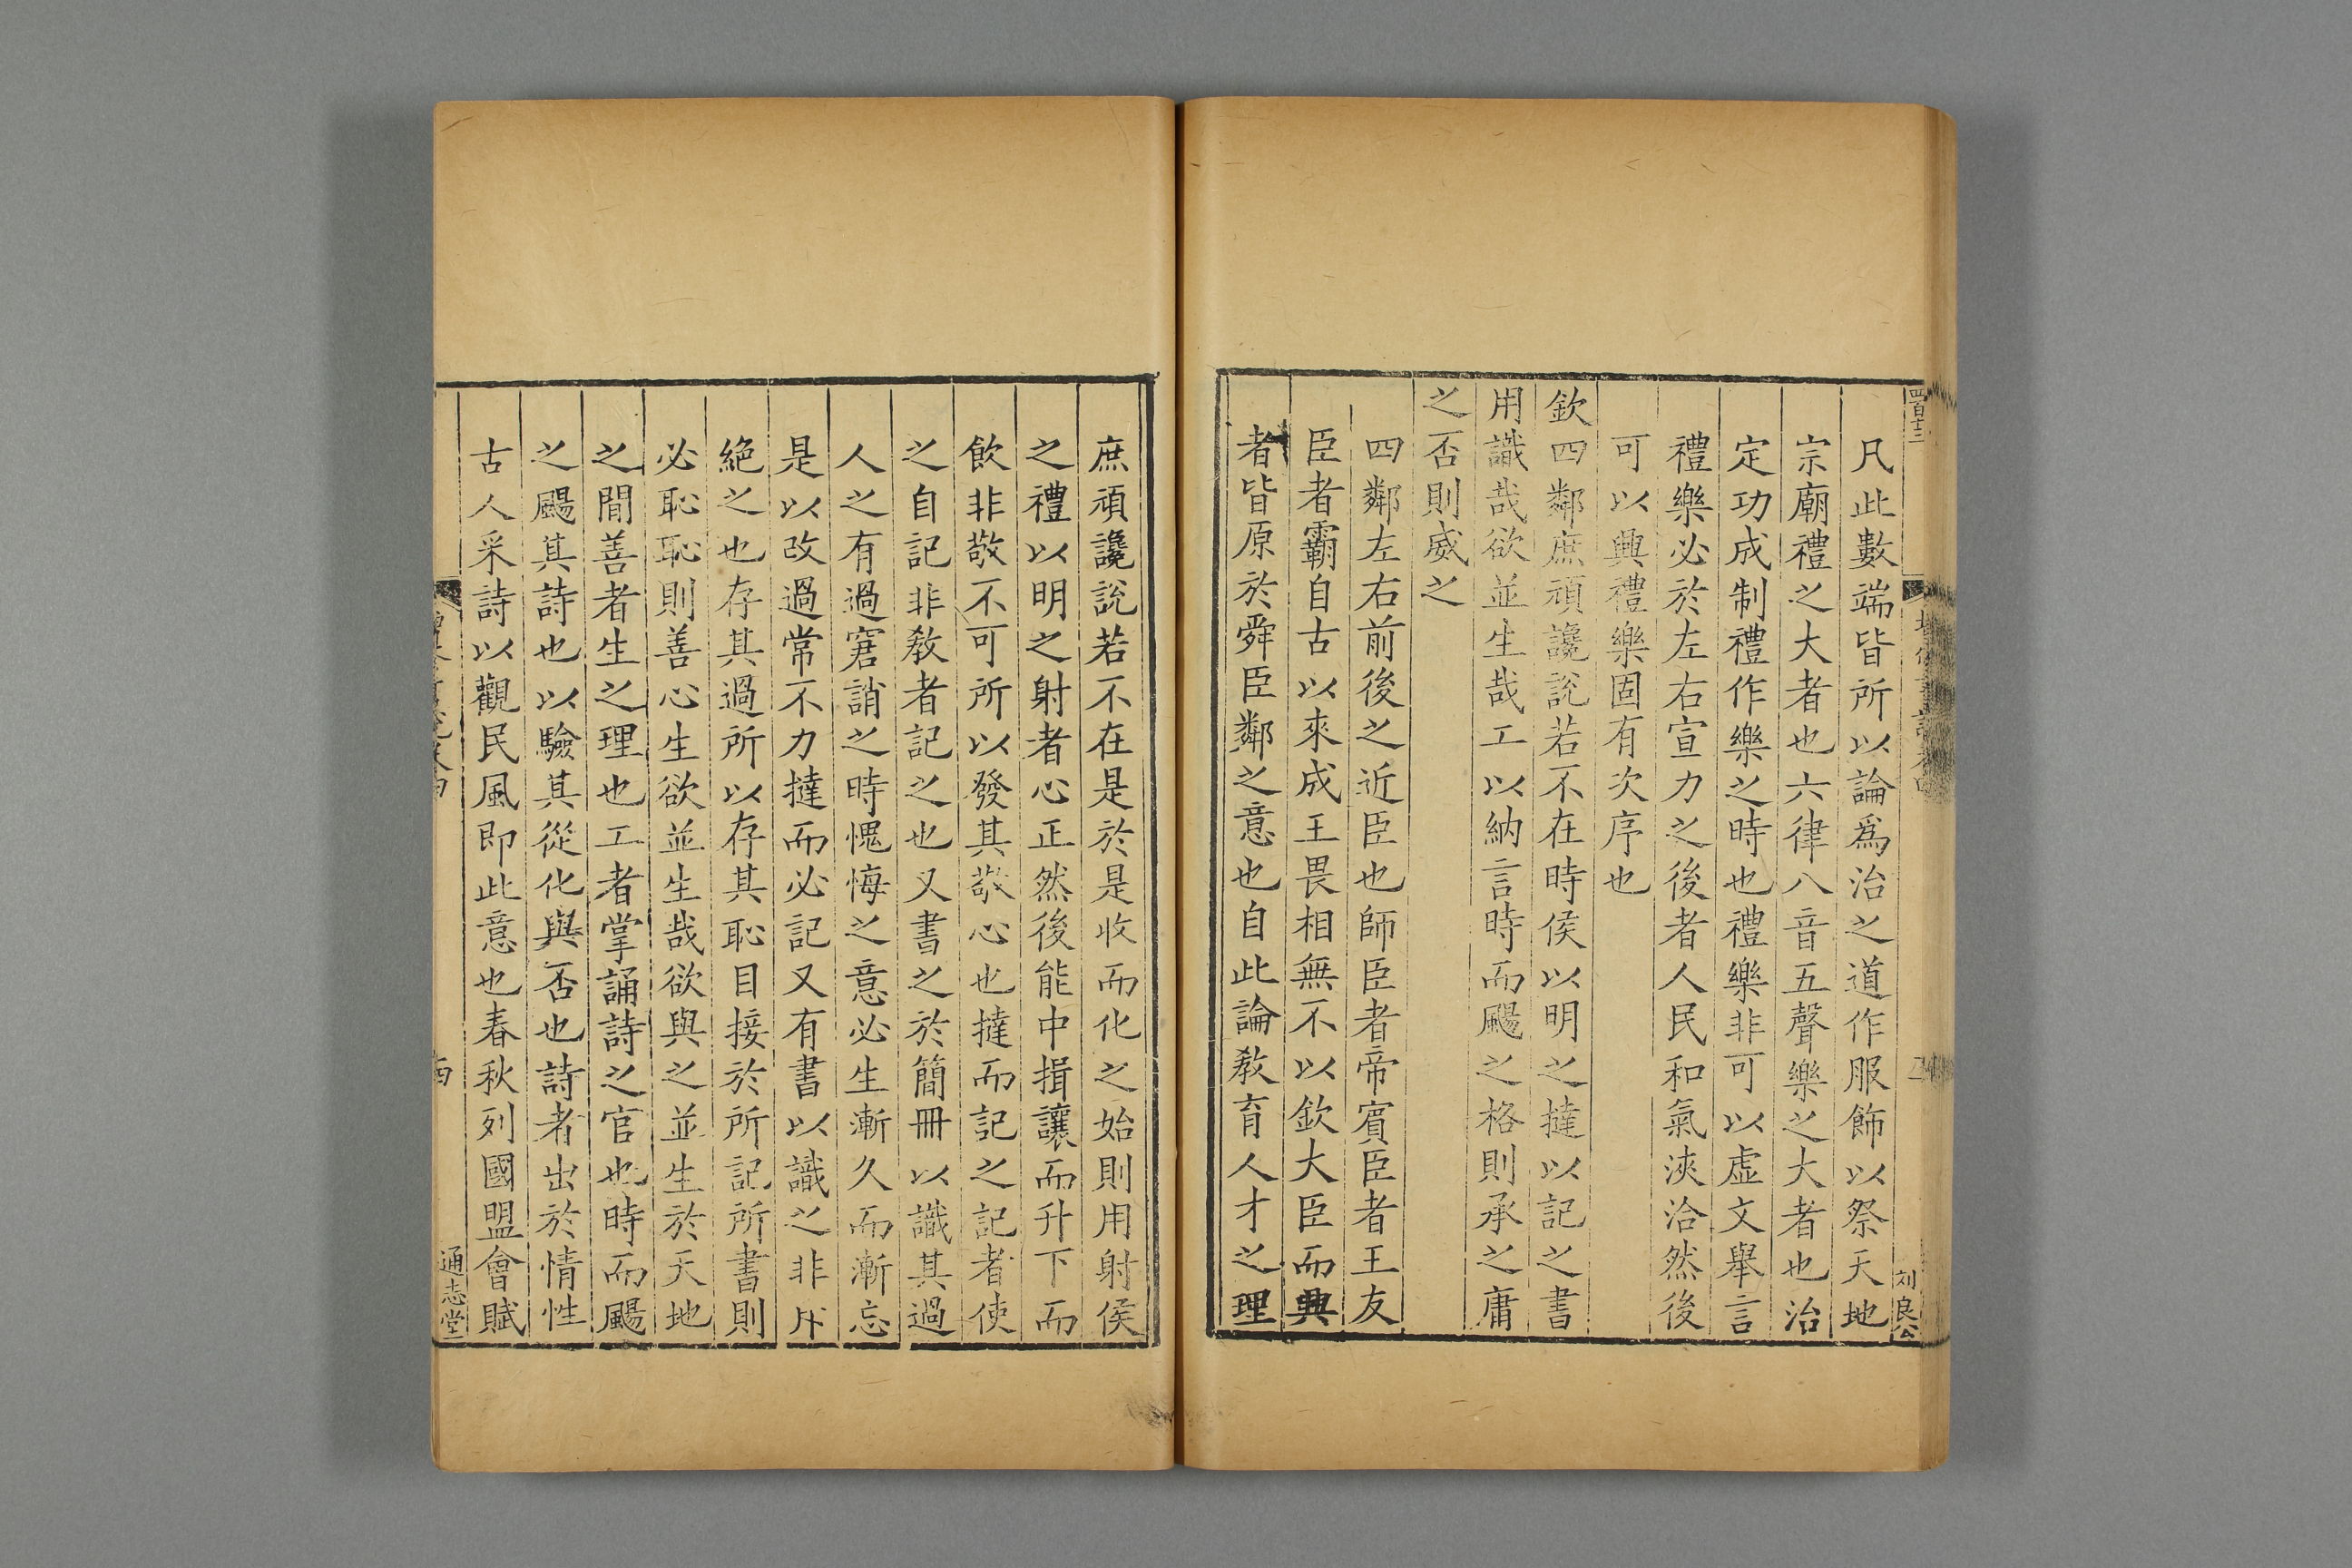 四百十三
刘良公
凡此數端皆所以論爲治之道作服飾以祭天地
宗廟禮之大者也六律八音五聲樂之大者也治
定功成制禮作樂之時也禮樂非可以虛文舉言
禮樂必於左右宣力之後者人民和氣浹洽然後
可以興禮樂固有次序也
欽四鄰庶頑讒說若不在時侯以明之撻以記之書
用識哉欲並生哉工以納言時而颺之格則承之庸
之否則威之
四鄰左右前後之近臣也師臣者帝賓臣者王友
臣者霸自古以來成王畏相無不以欽大臣而興
者皆原於舜臣鄰之意也自此論敎育人才之理
庶頑讒說若不在是於是收而化之始則用射侯
之禮以明之射者心正然後能中揖讓而升下而
飲非敬不可所以發其敬心也撻而記之記者使
之自記非敎者記之也又書之於簡冊以識其過
人之有過窘誚之時愧悔之意必生漸久而漸忘
是以改過常不力撻而必記又有書以識之非斥
絕之也存其過所以存其恥目接於所記所書則
必恥恥則善心生欲並生哉欲與之並生於天地
之間善者生之理也工者掌誦詩之官也時而颺
之颺其詩也以驗其從化與否也詩者出於情性
古人采詩以觀民風即此意也春秋列國盟會賦
通志堂